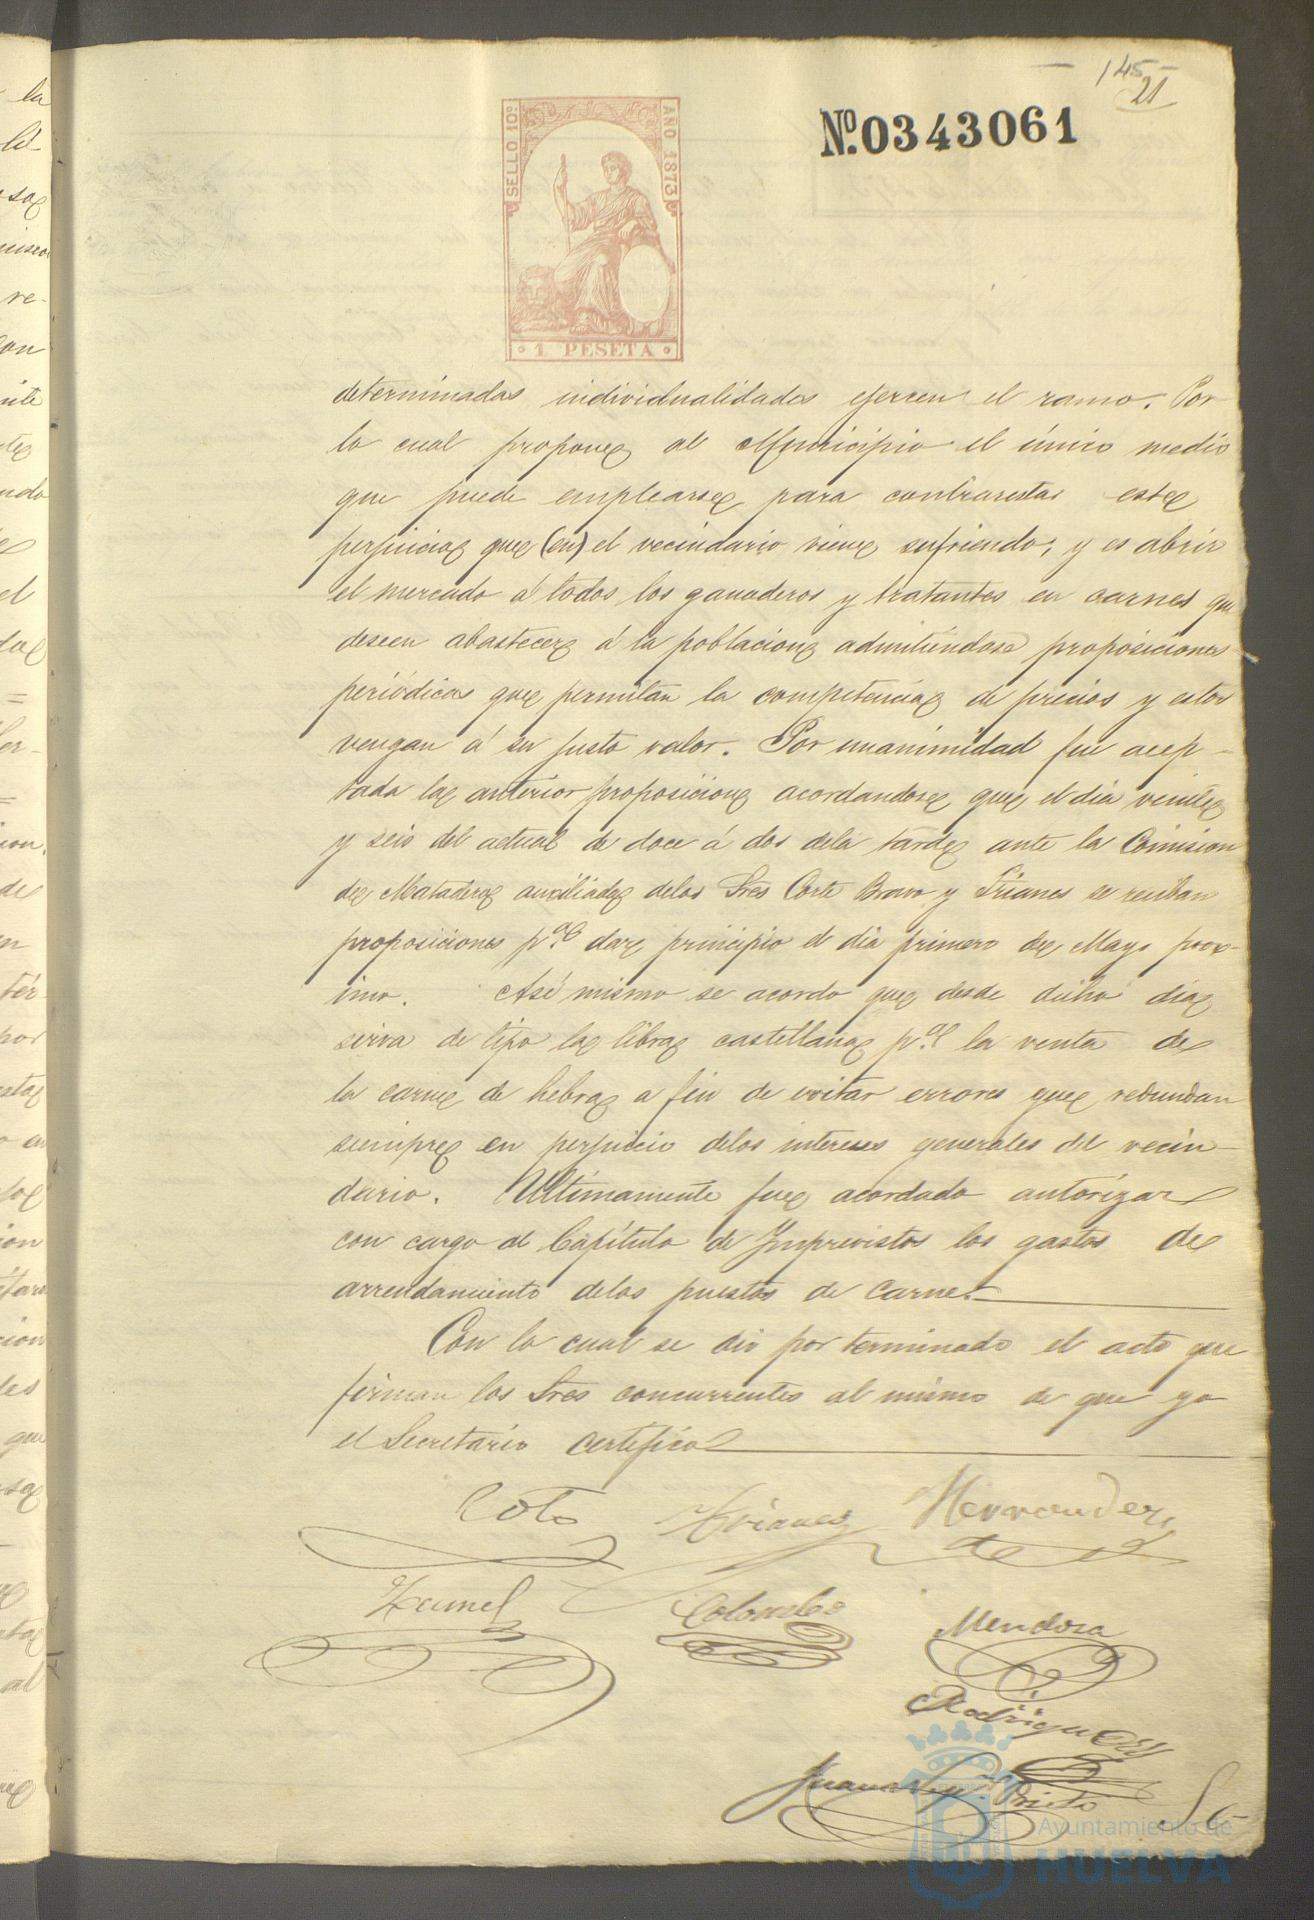 145
21
Nº. 0343061
SELLO 10º
AÑO 1873
1 PESETA
determinadas individualidades ejercen el ramo. Por
lo cual propone al Municipio el único medio
que puede emplearse para contrarestar este
perjuicio que (en) el vecindario viene sufriendo; y es abrir
el mercado á todos los ganaderos y tratantes en carnes que
deseen abastecer á la poblacion admitiendose proposiciones
periódicas que permitan la competencia de precios y estos
vengan á su justo valor. Por unanimidad fue acep-
tada la anterior proposicion acordandose que el dia veinte
y seis del actual de doce á dos dela tarde ante la Comision
de Matadero auxiliada delos Sres Corte Bravo y Trianes se reciban
proposiciones pª dar principio el dia primero de Mayo prox-
imo. Asi mismo se acordo que desde dicho dia
sirva de tipo la libra castellana pª la venta de
la carne de hebra a fin de evitar errores que redundan
siempre en perjuicio delos intereses generales del vecin-
dario. Ultimamente fue acordado autorizar
con cargo al Capítulo de Imprevistos los gastos de
arrendamiento delos puestos de carne.
Con lo cual se dio por terminado el acto que
firman los Sres concurrentes al mismo de que yo
el Secretario certifico
Coto Trianes Hernandez
Colombo
Mendoza
Rodriguez
Juan y Prieto
Ayuntamiento de
HUELVA